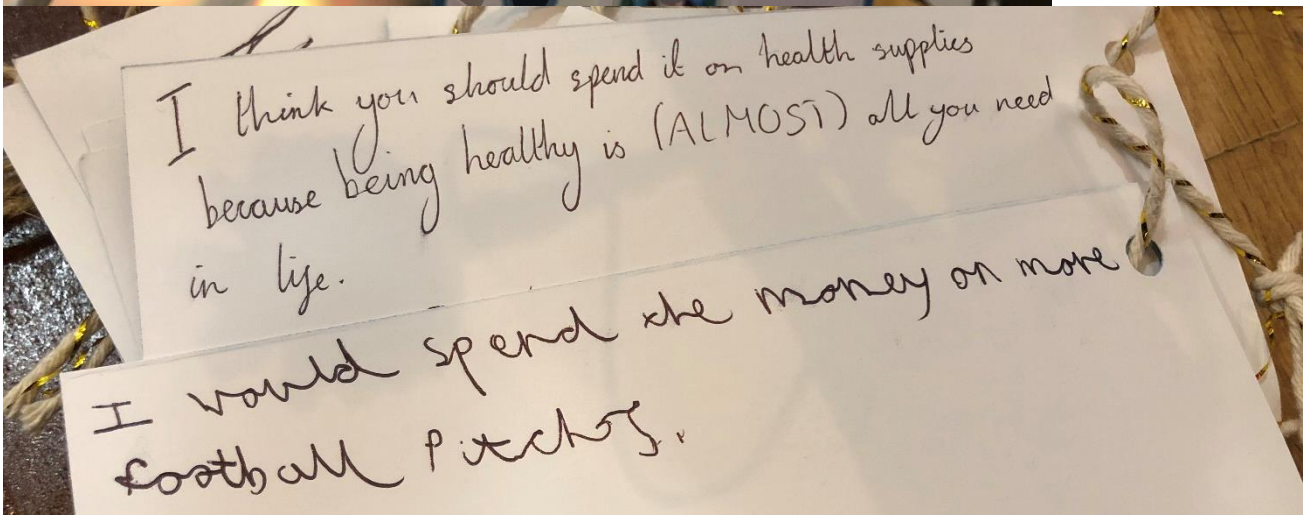 I think you should spend it on health supplies
because being healthy is (ALMOST) all you need
in life.
I would spend the money on more
football pitches.